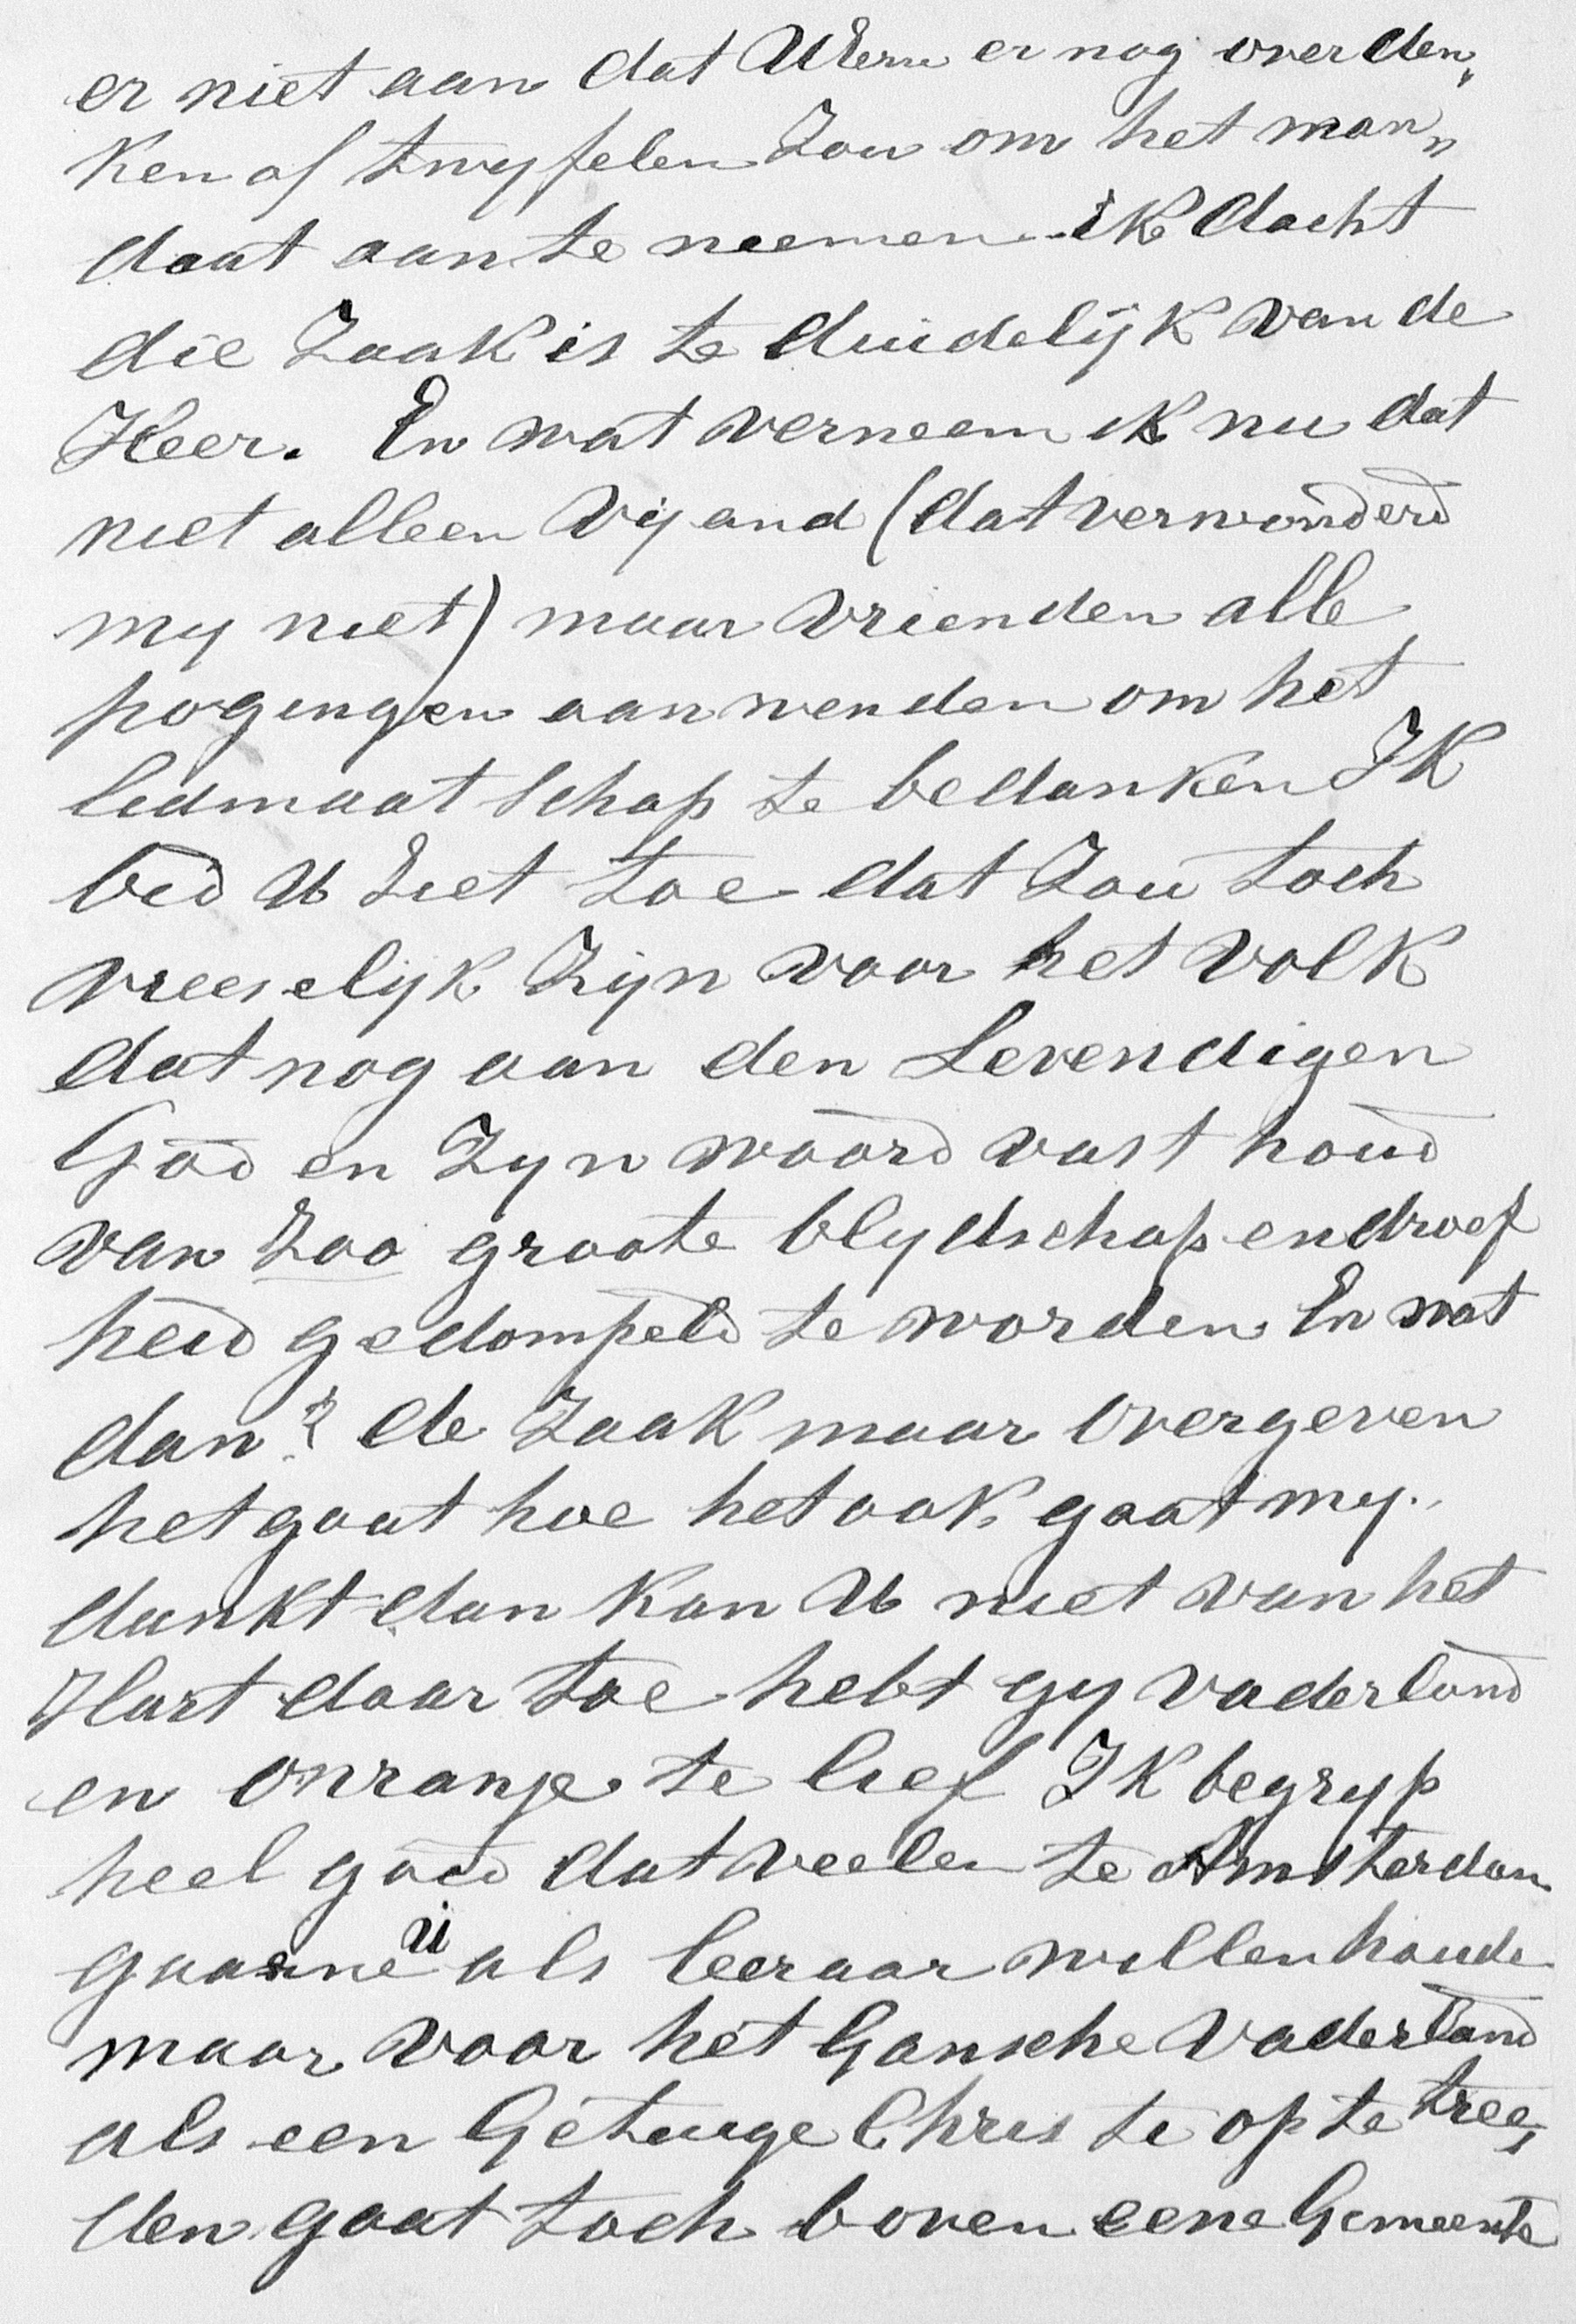 er niet aan dat UEerw er nog over den„
ken of twyfelen zou om het man„
daat aan te neemen ik dacht
die Zaak is te duidelijk van de
Heer. En wat verneem ik nu dat
niet alleen Vijand (dat verwonderd
my niet) maar vrienden alle
pogingen aanwenden om het
lidmaatschap te bedanken Ik
bid U ziet toe dat zou toch
vreeselijk zijn voor het volk
dat nog aan den Levendigen
God en Zyn woord vast houd
van zoo groote blydschap en droef
heid gedompeld te worden En wat
dan? de Zaak maar overgeven
het gaat hoe het ook gaat my„
dunkt dan kan U niet van het
Hart daar toe hebt gy vaderland
en onranje te lief Ik begryp
heel goed dat veelen te Amsterdam
gaarne U als leeraar willen houde
maar voor het Gansche vaderland
als een Getuige Christi op te tree„
den gaat toch boven eene Gemeente